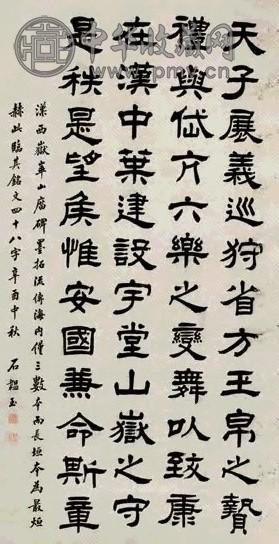 中华收藏网
天子展義巡狩省方王帛之贄
禮與岱亢六樂之變舞以致康
在漢中葉建設宇堂山嶽之守
是秩是望侯惟安國兼命斯章
漢西嶽華山廟碑墨拓流傳海内僅三數本而長垣本為最烜
赫此臨其銘文四十八字辛酉中秋 石韞玉